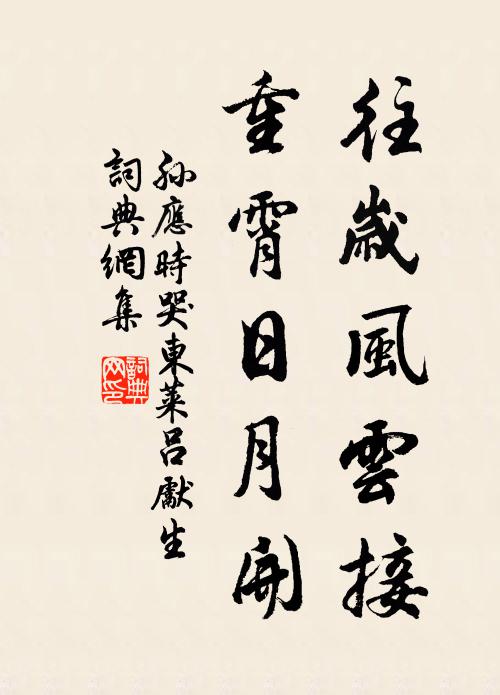 往歲風雲接
重霄日月開
孫應時哭東萊呂獻生
詞典網集
詞典
网印